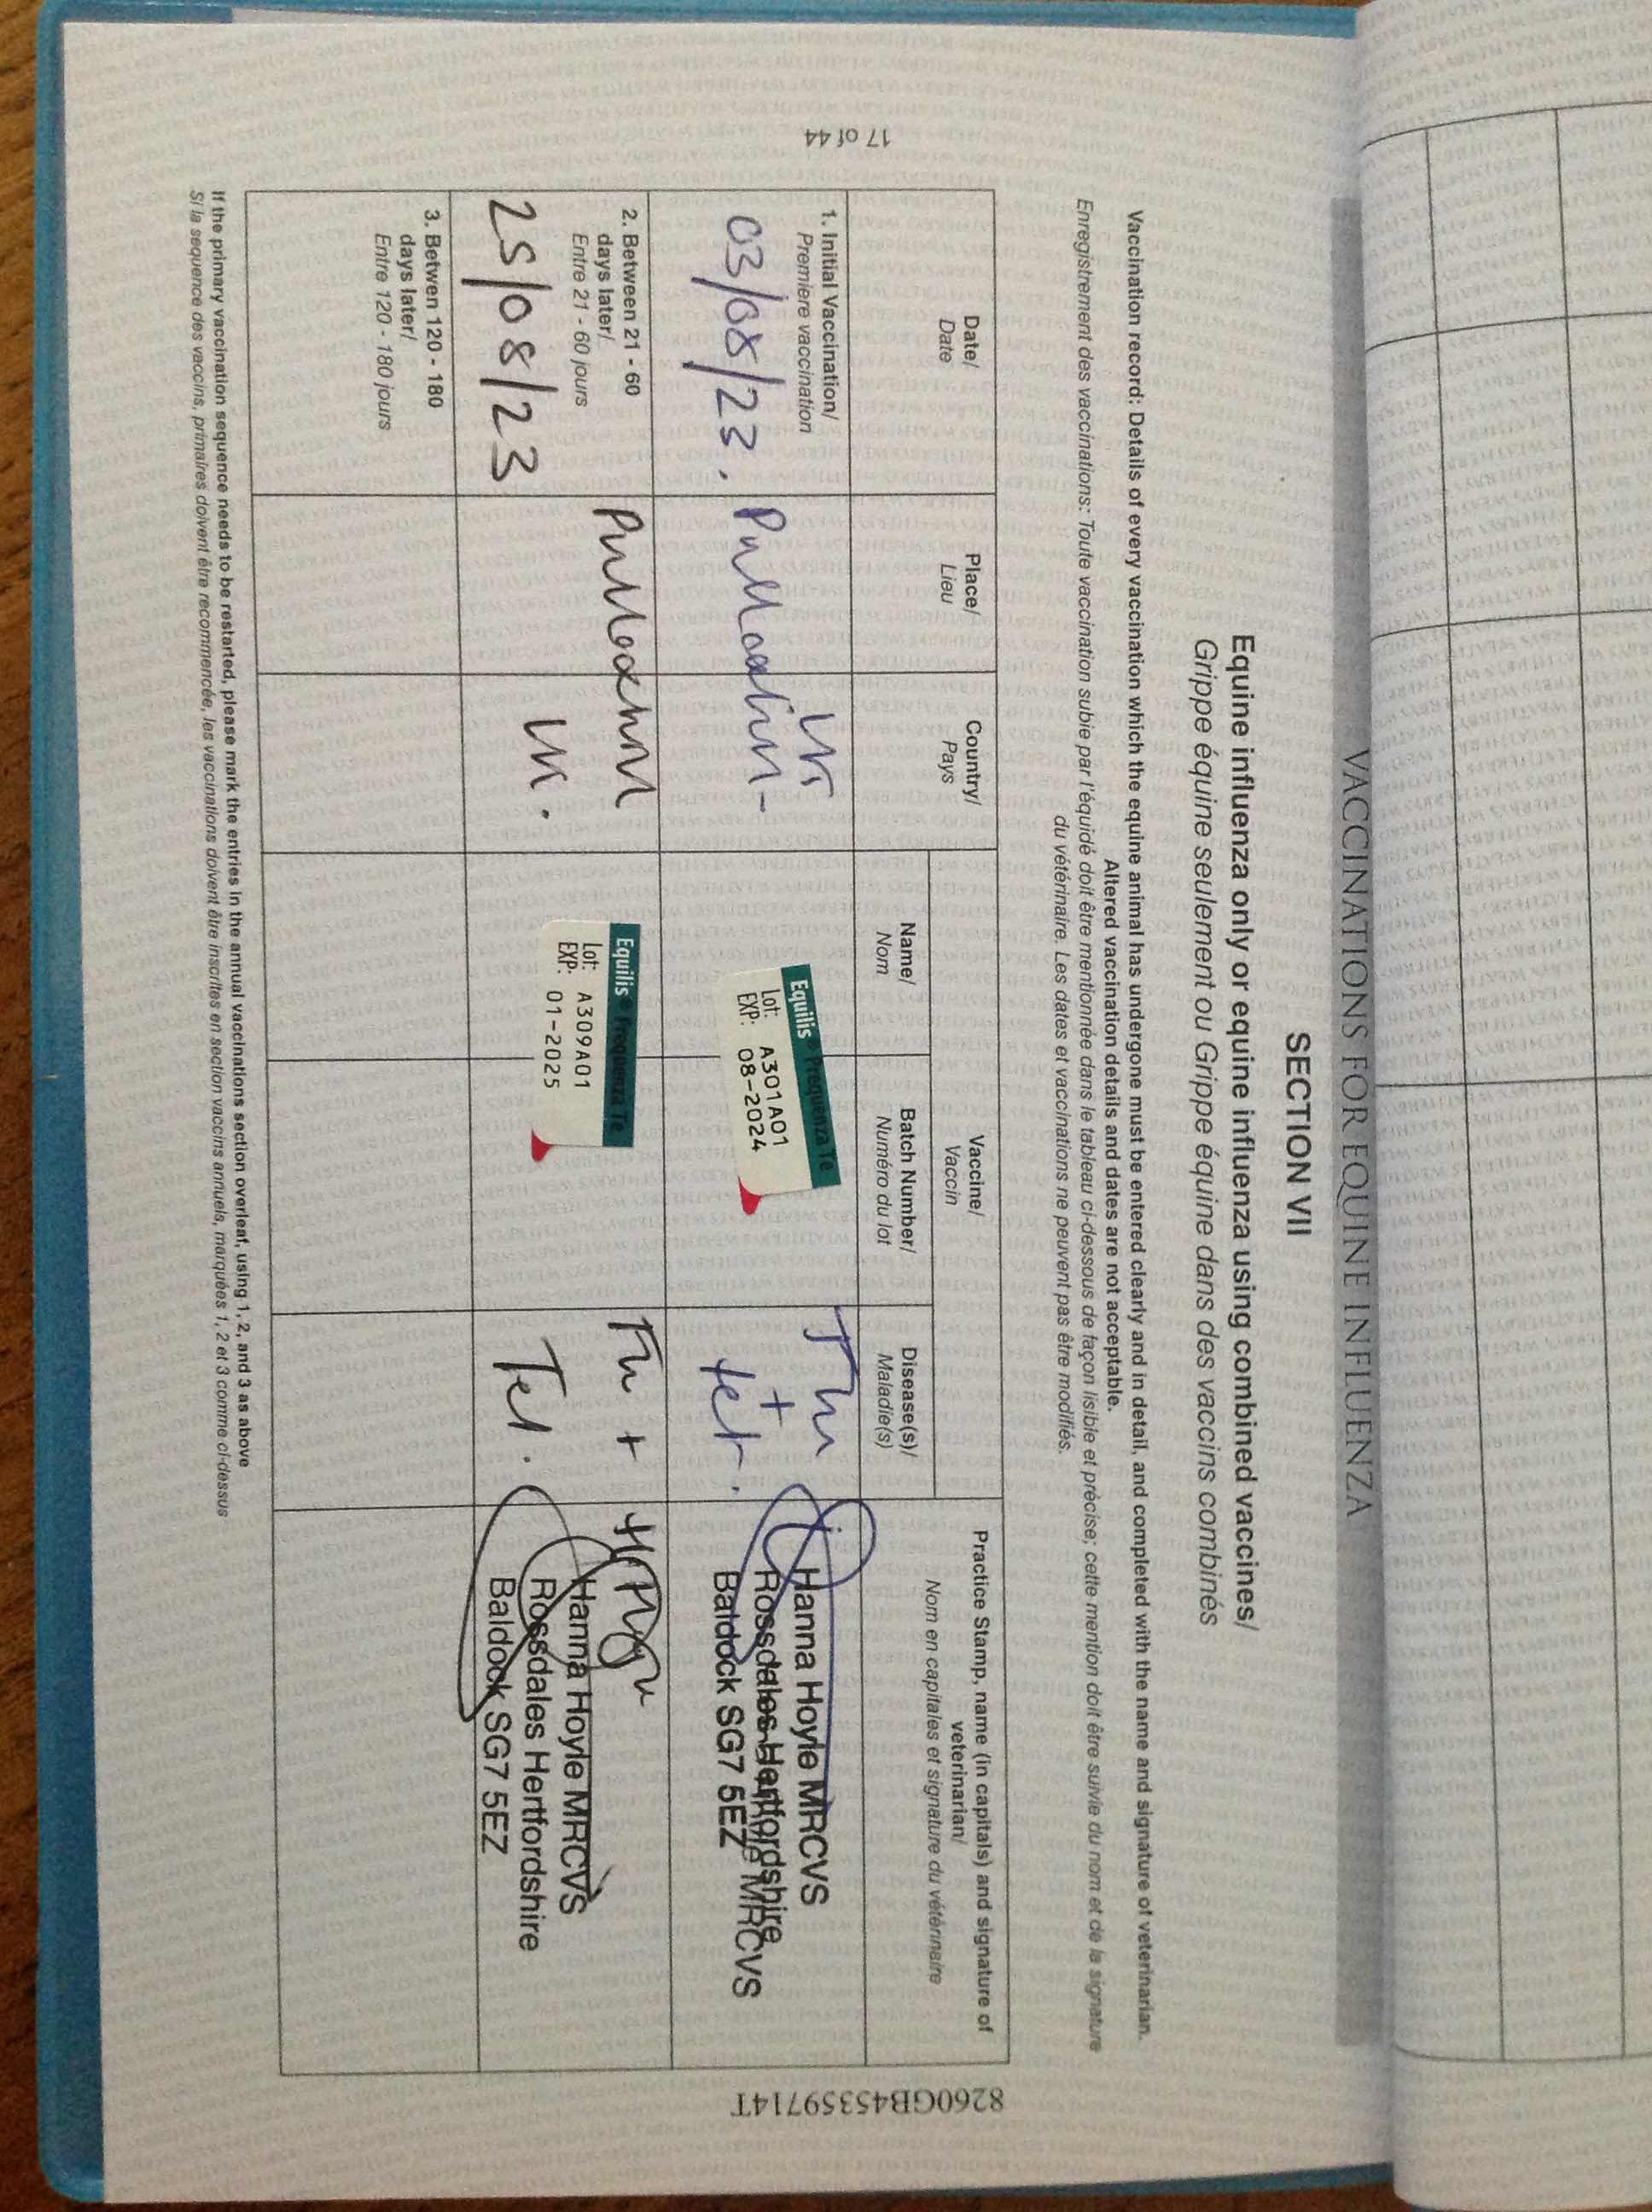 VACCINATIONS FOR EQUINE INFLUENZA
SECTION VII
Equine influenza only or equine influenza using combined vaccines/
Grippe équine seulement ou Grippe équine dans des vaccins combinés
Vaccination record: Details of every vaccination which the equine animal has undergone must be entered clearly and in detail, and completed with the name and signature of veterinarian.
Altered vaccination details and dates are not acceptable.
Enregistrement des vaccinations: Toute vaccination subie par l'équidé doit être mentionnée dans le tableau ci-dessous de façon lisible et précise; cette mention doit être suivie du nom et de la signature
du vétérinaire. Les dates et vaccinations ne peuvent pas être modifiés.
Date/
Date
Place/
Lieu
Country/
Pays
Vaccine/
Vaccin
Name/
Nom
Batch Number/
Numéro du lot
Disease(s)/
Maladie(s)
Practice Stamp, name (in capitals) and signature of
veterinarian/
Nom en capitales et signature du vétérinaire
1. Initial Vaccination/
Premiere vaccination
03/08/23.
UK
Equilis Prequenza Te
Lot: A301A01
EXP: 08-2024
Flu
+
tet.
Hanna Hoyle MRCVS
Rossdales Hertfordshire
Baldock SG7 5EZ
MRCVS
2. Between 21 - 60
days later/
Entre 21 - 60 jours
25/08/23
UK.
Equilis Prequenza Te
Lot: A309A01
EXP: 01-2025
Flu +
Tet.
Hanna Hoyle MRCVS
Rossdales Hertfordshire
Baldock SG7 5EZ
3. Betwen 120 - 180
days later/
Entre 120 - 180 jours
If the primary vaccination sequence needs to be restarted, please mark the entries in the annual vaccinations section overleaf, using 1, 2, and 3 as above
Si la sequence des vaccins, primaires doivent être recommencée, les vaccinations doivent être inscrites en section vaccins annuels, marquées 1, 2 et 3 comme ci-dessus
17 of 44
8260GB45359714T